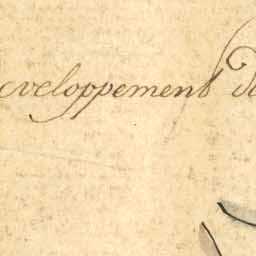 eveloppement d